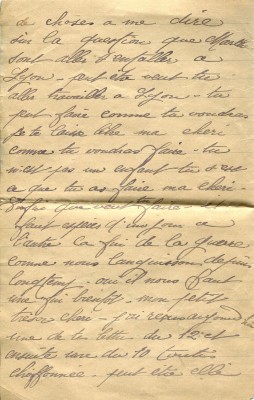 de choses a me dire
sur la question que Marthe
sont allés s'installer a
Lyon - peut etre veut tu
aller travailler a Lyon - tu
peut faire comme tu voudras
je te laisse libre ma cheri
comme tu voudras faire - tu
n'est pas un enfant tu s
a que tu as faire ma cheri -
Enfin que veut faire - il
faut esperer d'un jour a
l'autre la fin de la guerre
comme nous languissons depuis
longtemp - oui il nous faut
une fin bientot - mon petit
tresor cheri - j'ai reçu aujourd'hui
une de tes lettre du 12 et
ensuite une du 10 toute
chiffonnée - peut etre elle